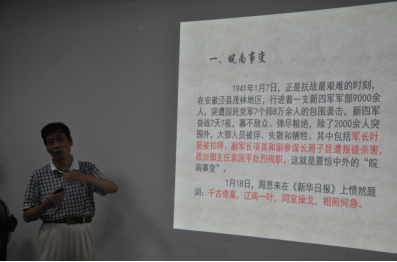 一、皖南事变
1941年1月7日，正是抗战最艰难的时刻，
在安徽泾县茂林地区，行进着一支新四军军部9000余
人，突遭国民党军7个师8万余人的包围袭击，新四军
奋战7天7夜，寡不敌众、弹尽粮绝，除了2000余人突
围外，大部人员被俘、失散和牺牲，其中包括军长叶
挺被扣押，副军长项英和副参谋长周子昆遭叛徒杀害，
政治部主任袁国平壮烈殉职。这就是震惊中外的“皖
南事变”。
1月18日，周恩来在《新华日报》上愤然题
词：千古奇冤，江南一叶，同室操戈，相煎何急。